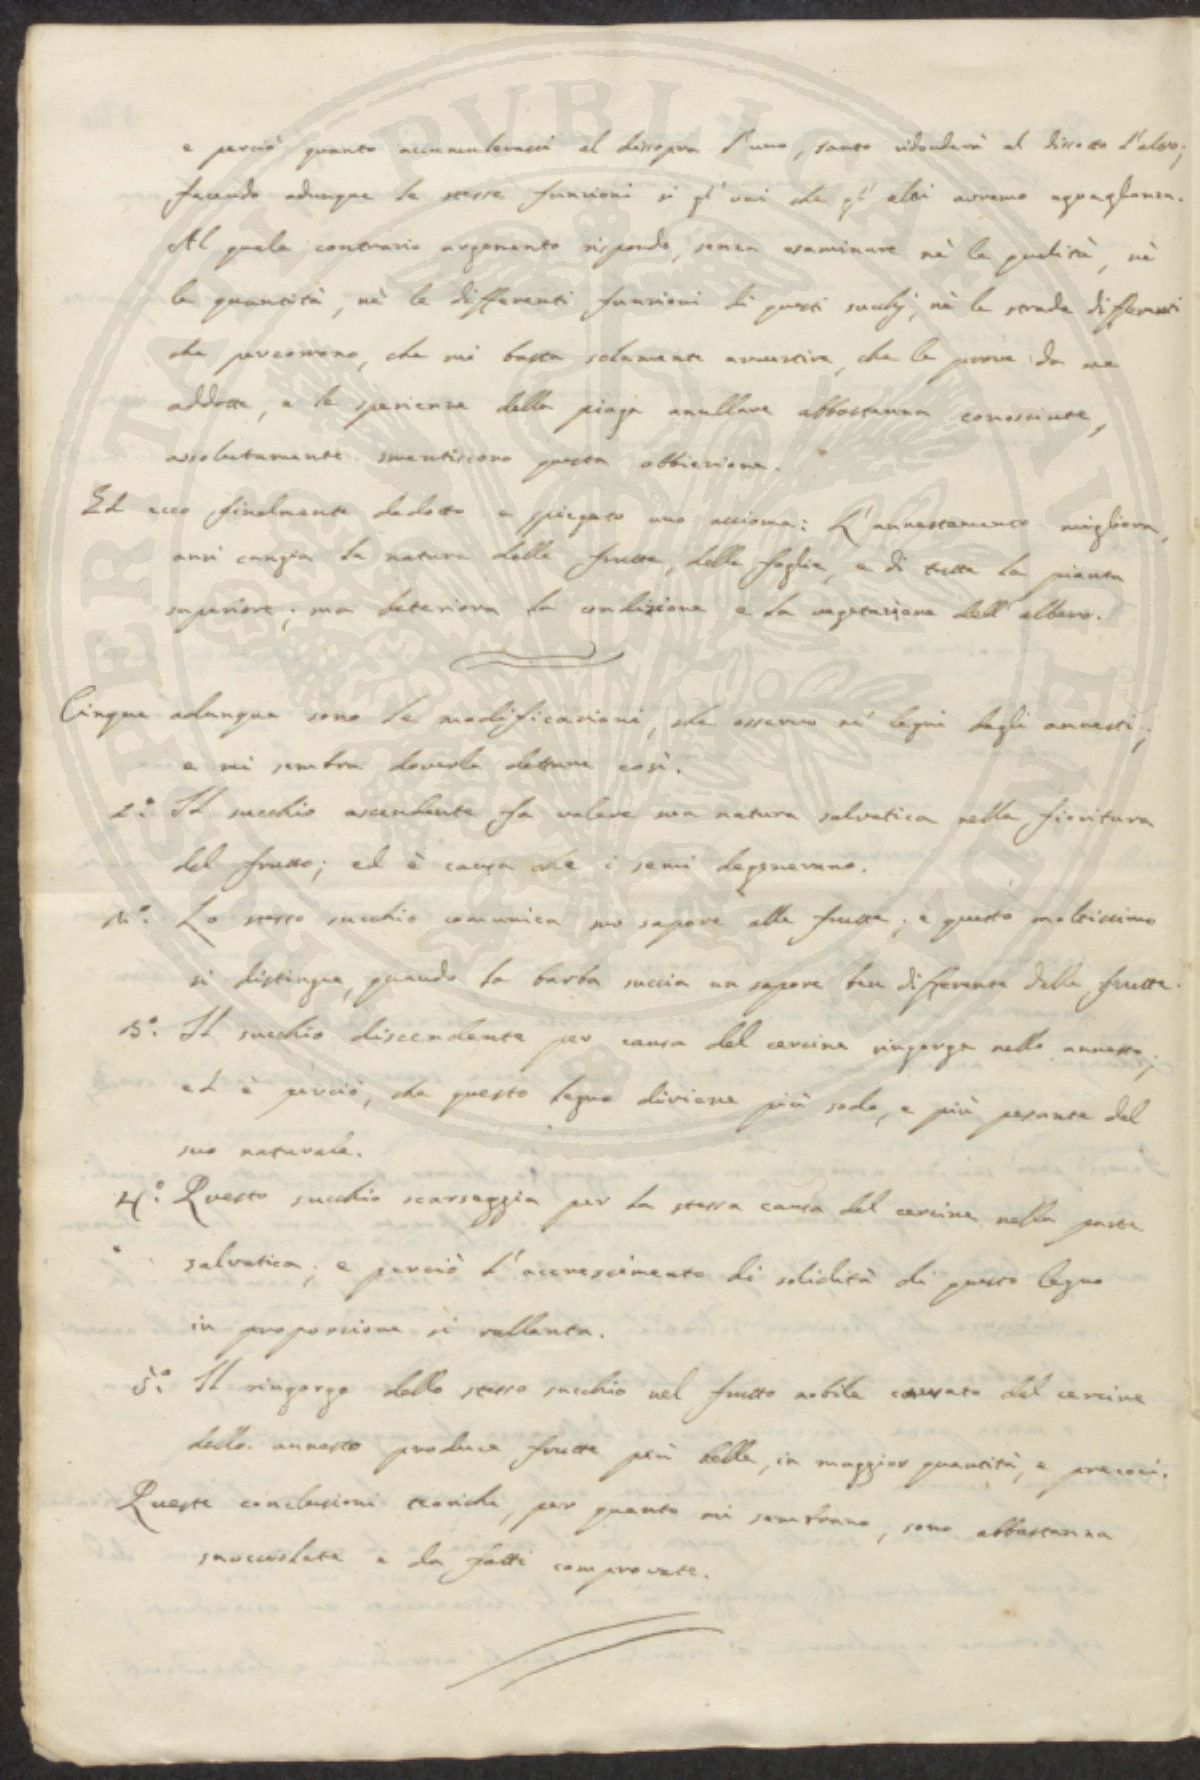 e perciò quanto accumulerassi al dissopra l'uno, tanto ridonderà al dissotto l'altro;
facendo adunque le stesse funzioni sì gl' uni che gl' altri avremo aguaglianza.
Al quale contrario argomento rispondo, senza esaminare nè le qualità, nè
le quantità, nè le differenti funzioni di questi succhj, nè le strade differenti
che percorrono, che mi basta solamente avvertire, che le prove da me
addotte, e le sperienze della piaga anullare abbastanza conosciute,
assolutamente smentiscono questa obbiezione.
Ed ecco finalmente dedotto e spiegato uno assioma: L'annestamento migliora,
anzi cangia la natura delle frutta, delle foglie, e di tutta la pianta
superiore; ma deteriora la condizione e la vegetazione dell' albero.
Cinque adunque sono le modificazioni, che osservo ne' legni degli annesti;
e mi sembra doverle dettare così.
1.° Il succhio ascendente fa valere sua natura salvatica nella fioritura
del frutto; ed è causa che i semi degenerano.
2.° Lo stesso succhio comunica suo sapore alle frutta; e questo moltissimo
si distingue, quando la barba succia un sapore ben differente dalla frutta.
3.° Il succhio discendente per causa del cercine ringorga nello annesto;
ed è perciò, che questo legno diviene più sodo, e più pesante del
suo naturale.
4.° Questo succhio scarseggia per la stessa causa del cercine nella parte
salvatica; e perciò l'accrescimento di solidità di questo legno
in proporzione si rallenta.
5.° Il ringorgo dello stesso succhio nel frutto nobile causato del cercine
dello annesto produce frutte più belle, in maggior quantità, e precoci.
Queste conclusioni teoriche, per quanto mi sembrano, sono abbastanza
snocciolate e da fatti comprovate.